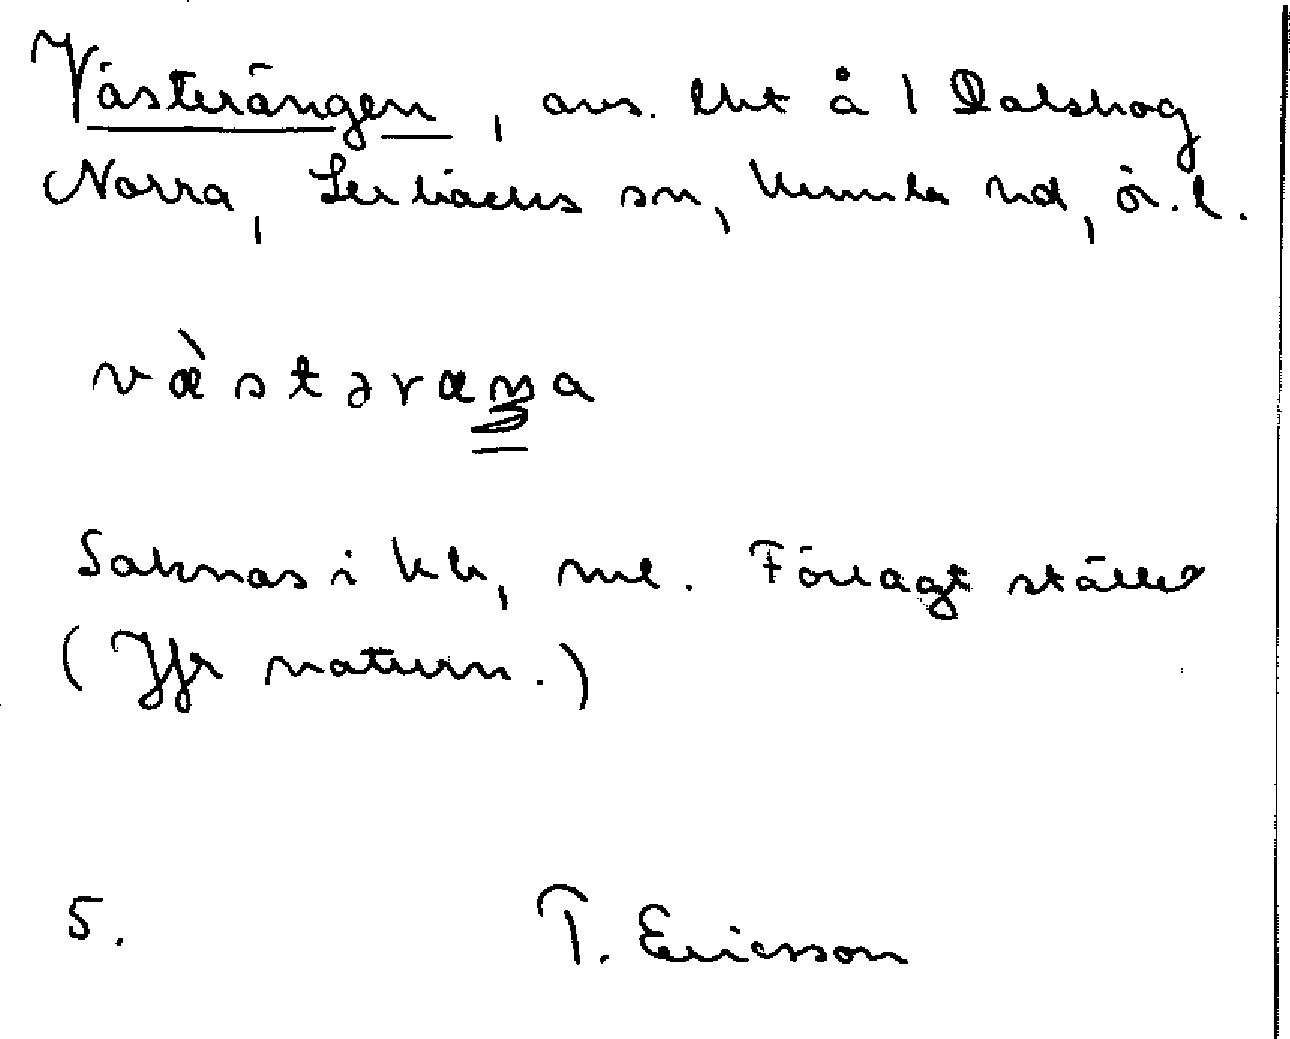 Västerängen, avs. lht å 1 Dalskog
Norra, Lerbäcks sn, Kumla hd, ör. l.
västəraŋa
Saknas i kb, ml. Förlagt ställe
(Jfr naturn.)
5. T. Ericsson